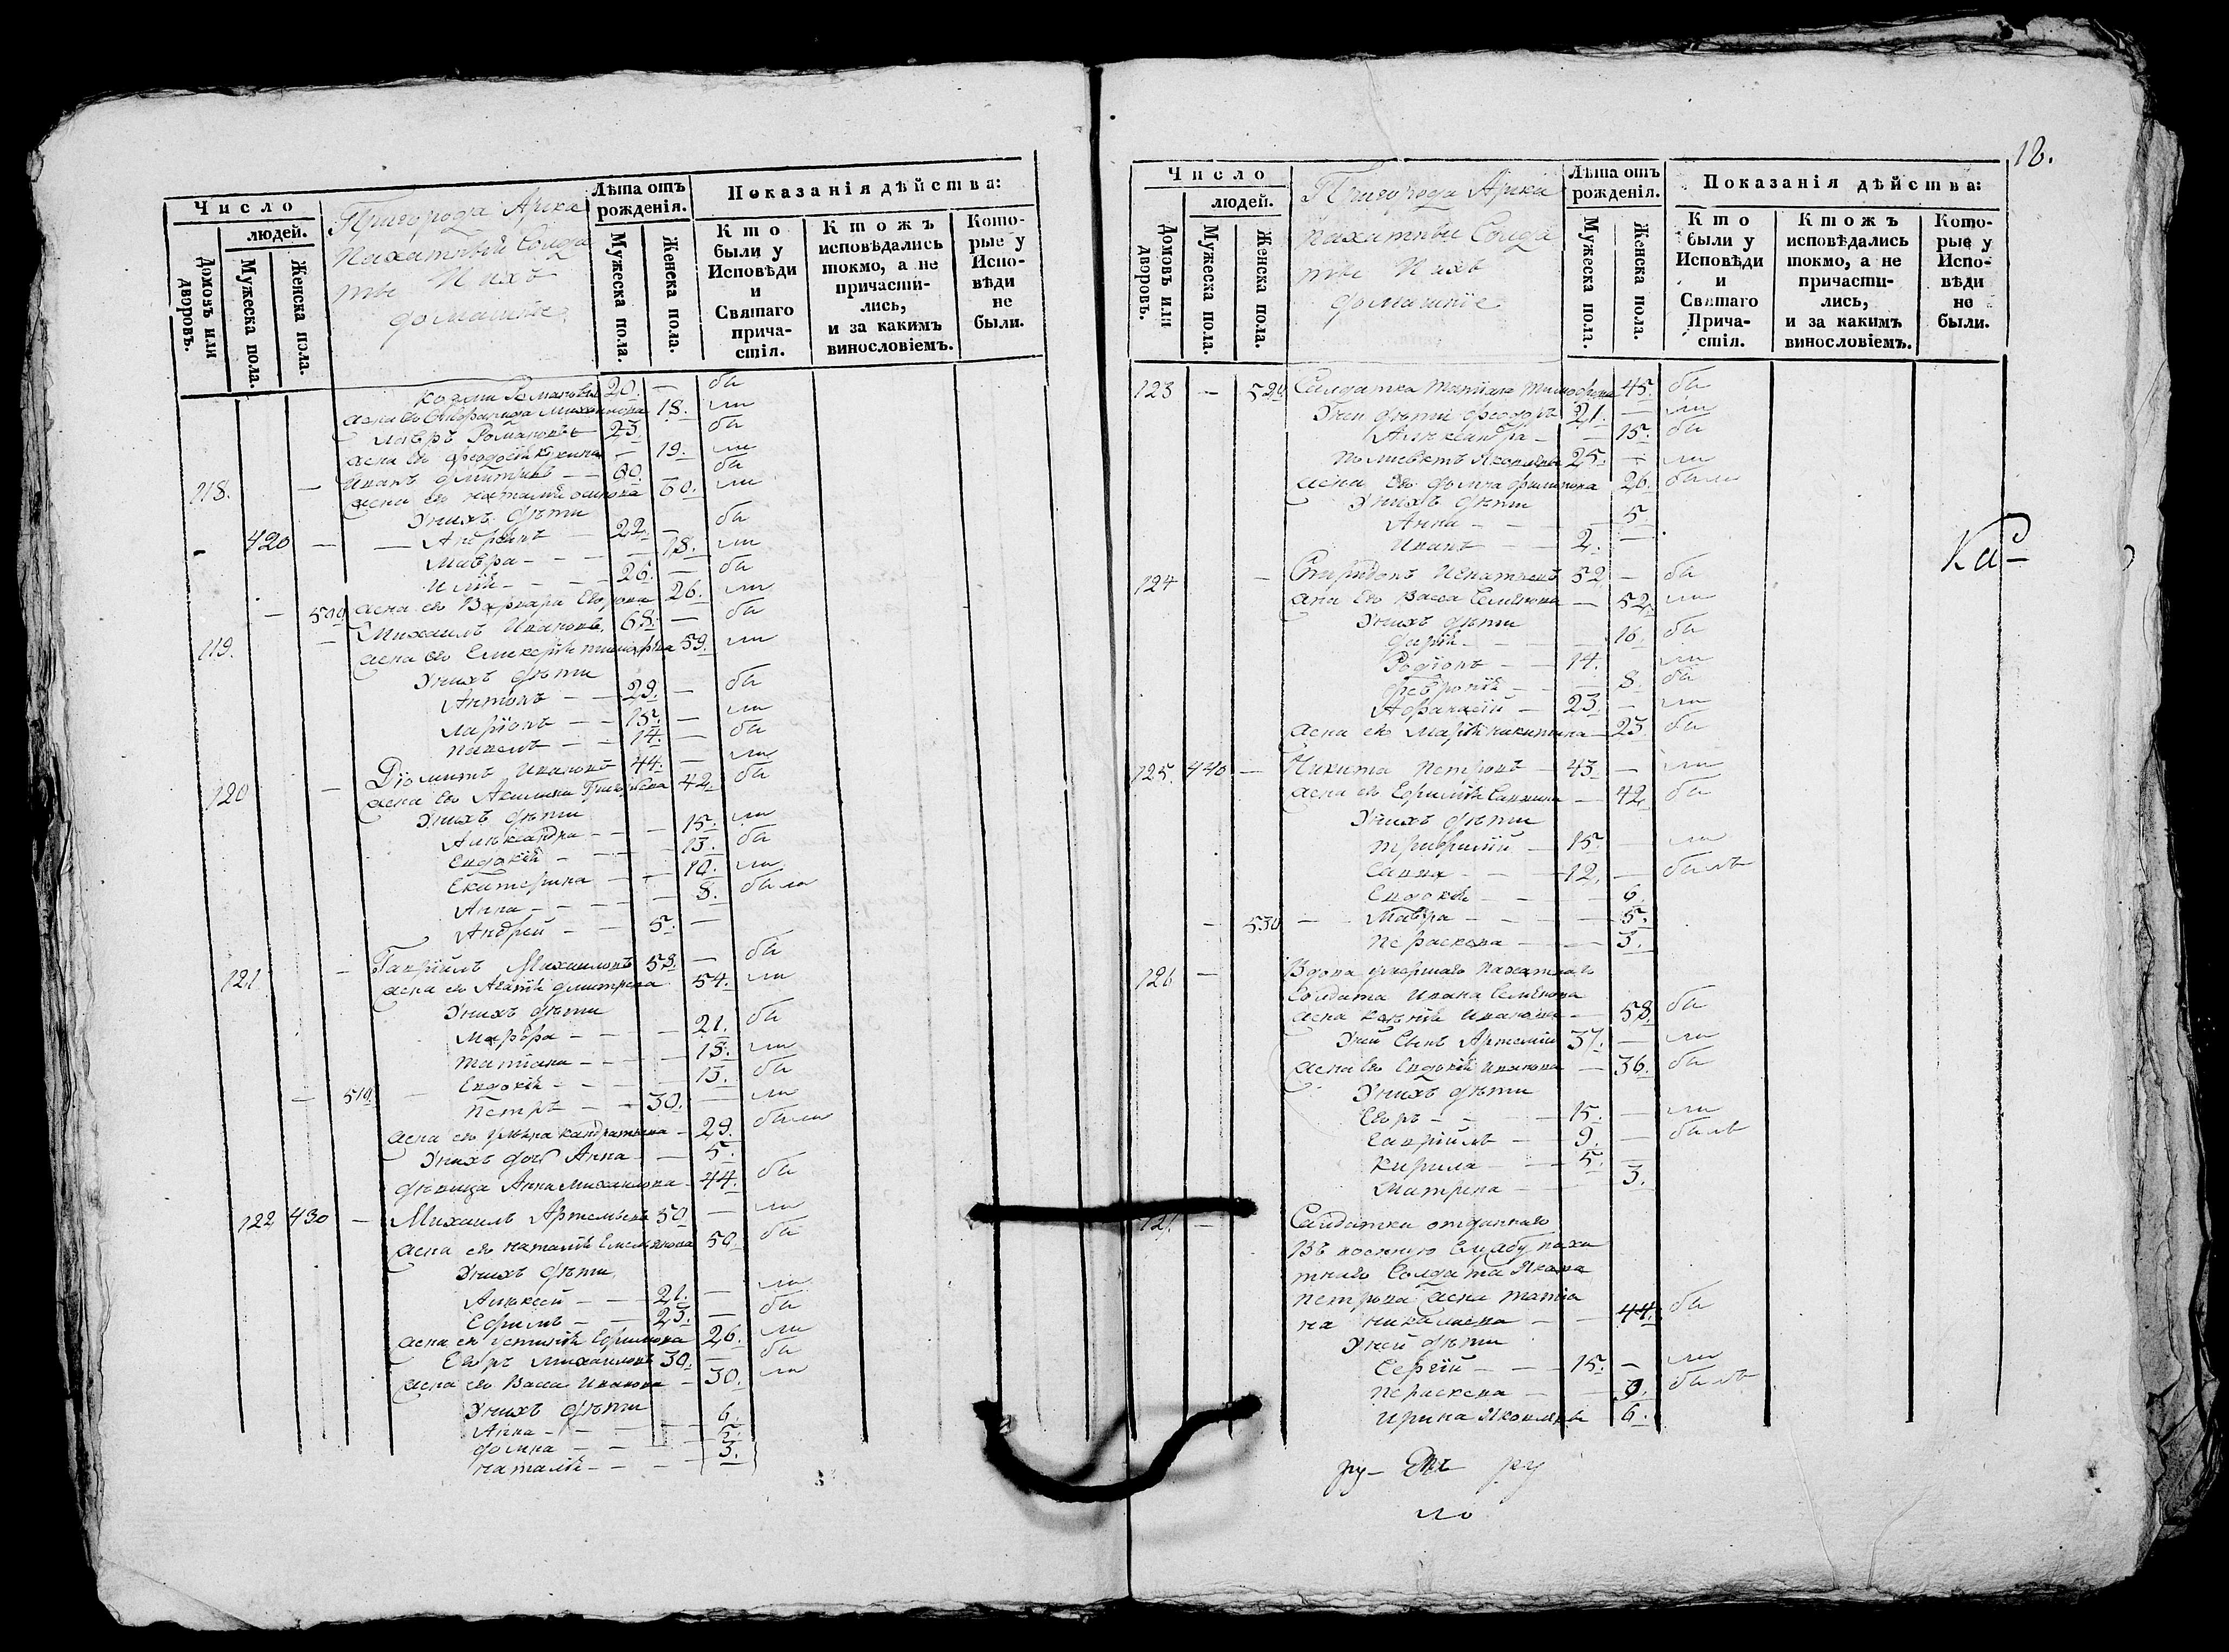 Число
людей.
Домовъ или дворовъ.
Мужеска пола.
Женска пола.
Пригорода Арска
пахатный Солда
ты И ихъ
домашніе
Лѣта отъ рожденія.
Мужеска пола.
Женска пола.
Показанія дѣйства:
Кто были у Исповѣди и Святаго причастія.
Ктожъ исповѣдались токмо, а не причастились, и за какимъ винословіемъ.
Которые у Исповѣди не были.
Козма Романовъ 20. — бы
жена ево Михаилова 18. ли
Лавръ Романовъ 23. бы
жена ев — 19. ли
118. — Иванъ Дмитріевъ — 60. бы
жена ев Наталія Осипова 60. ли
Унихъ дѣти
- 420 — — Андреянъ 22. — бы
Мавра - — — 18. ли
Илія - — — 26. — бы
— 500 жена ев Варвара Егорова 26. ли
119. — Михаилъ Ивановъ 68. — бы
жена ев Гликерія Тимофѣева 59. ли
Унихъ дѣти
Антонъ — — 29. — бы
Ларіонъ — — 15. — ли
Павелъ — — 14. — бы
120 — Діомитъ Ивановъ 44. — ли
жена ево Акилина Григорьева 42. бы
Унихъ дѣти
Александра - — — 15. ли
Евдокія - — — 13. бы
Екатерина — — 10. ли
Анна - — — 8. была
Андрей — — 5. —
121. — Гавріилъ Михаиловъ 53. — бы
жена ев Агафія Дмитрева 54. ли
Унихъ дѣти
Марфа - — — 21. бы
Татіана - — — 18. ли
Евдокія - — — 13. бы
— 510. — Петръ — — 30. — ли
жена ев Кандратьева — 29. были
Унихъ дочь Анна — 5.
дѣвица Анна Михаилова 44. бы
122 430 — Михаилъ Артемьевъ 50 — ли
жена ев Наталія Емельянова 50. бы
Унихъ дѣти
Алексѣй — — 21. — ли
Ефимъ — — 25. — бы
жена ев Устинія Ефимова 26. ли
Егоръ Михаиловъ 30. — бы
жена ев Васса Иванова — 30. ли
Унихъ дѣти
Анна - — — 6.
Домна — — 5.
Наталія - — — 3.
18.
Число
людей.
Домовъ или дворовъ.
Мужеска пола.
Женска пола.
Пригорода Арска
пахатные Солда
ты И ихъ
домашніе
Лѣта отъ рожденія.
Мужеска пола.
Женска пола.
Показанія дѣйства:
Кто были у Исповѣди и Святаго Причастія.
Ктожъ исповѣдались токмо, а не причастились, и за какимъ винословіемъ.
Которые у Исповѣди не были.
123 — 520 Салдатка Татіана Тимофѣева 45. бы
Унеи дѣти Феодоръ 21. — ли
Александра — — 15. бы
Полиевктъ Яковлевъ 25. — ли
жена ево Домна Филипова 26. были
Унихъ дѣти
Анна - — — 5.
Иванъ — — 2. —
124 — Спиридонъ Игнатьевъ 52 — бы
жена ево Васса Семенова — 52. ли
Унихъ дѣти
Дарія — — 16. бы
Родіонъ — — 14. ли
Февронія — — 8. бы
Афанасій — 23. — ли
жена ев Марія Никитина — 23 бы
Ка-
125. 440 — Никита Петровъ — 43. — ли
жена ев Ефимія Саввина — 42. бы
Унихъ дѣти
Трифилій — 15. — ли
Савва — — 12. — былъ
Евдокія — — 6.
— 530 — Мавра — — 5.
Параскева — — 3.
126 — Вдова умершаго пахатнаго
Солдата Ивана Семенова
жена Ксенія Иванова — 58. бы
Уней Сынъ Артемій 37. — ли
жена ево Евдокія Иванова — 36. бы
Унихъ дѣти
Егоръ — — 15. — ли
Гавріилъ — — 9. — былъ
Кирила — — 5. —
Матрена — — 3.
127. — Салдатка отданнаго
Въ военную Службу паха
тнаго Солдата Якова
Петрова жена Татіа
на Николаева — — 44. бы
Уней дѣти
Сергій — — 15. — ли
Параскева — — 9. былъ
Ирина Яковлева 6.
ру— ру
ло